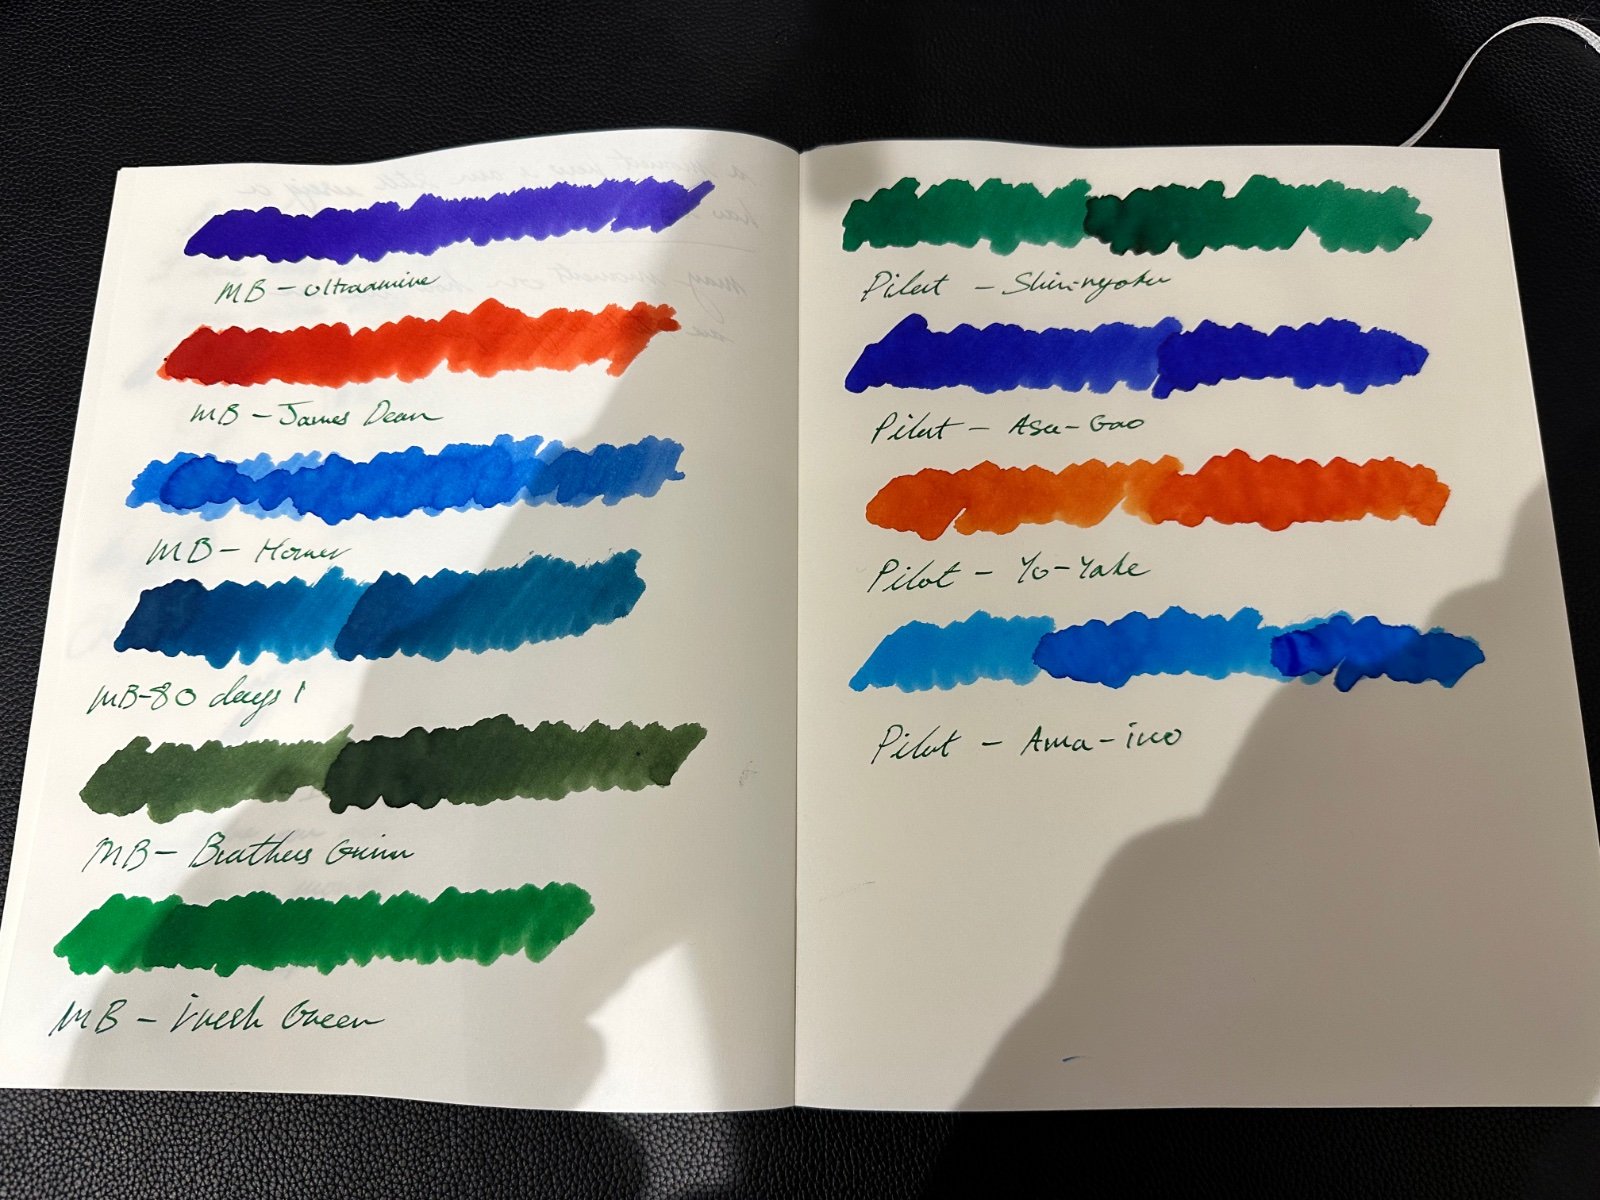 MB - Ultraamine
MB - James Dean
MB - Homer
MB-80 days 1
MB - Brothers Grimm
MB - Irish Green
Pilot - Shin-ryoku
Pilot - Asa-Gao
Pilot - Yo-Yake
Pilot - Ama-iro